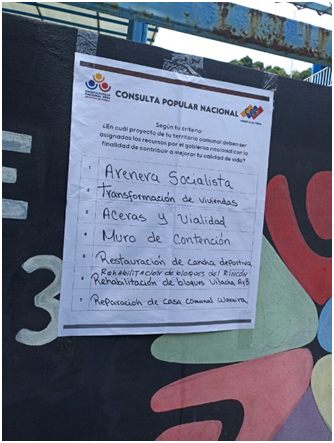 CONSULTA POPULAR NACIONAL
Según tu criterio:
¿En cuál proyecto de tu territorio comunal deben ser
asignados los recursos por el gobierno nacional con la
finalidad de contribuir a mejorar tu calidad de vida?
1 Arenera Socialista
2 Transformación de viviendas
3 Aceras y Vialidad
4 Muro de Contención
5 Restauración de cancha deportiva
REHABILITACION de bloques del RINCÓN
6 Rehabilitación de bloques Vilacha A y B
7 Reparación de casa comunal
3